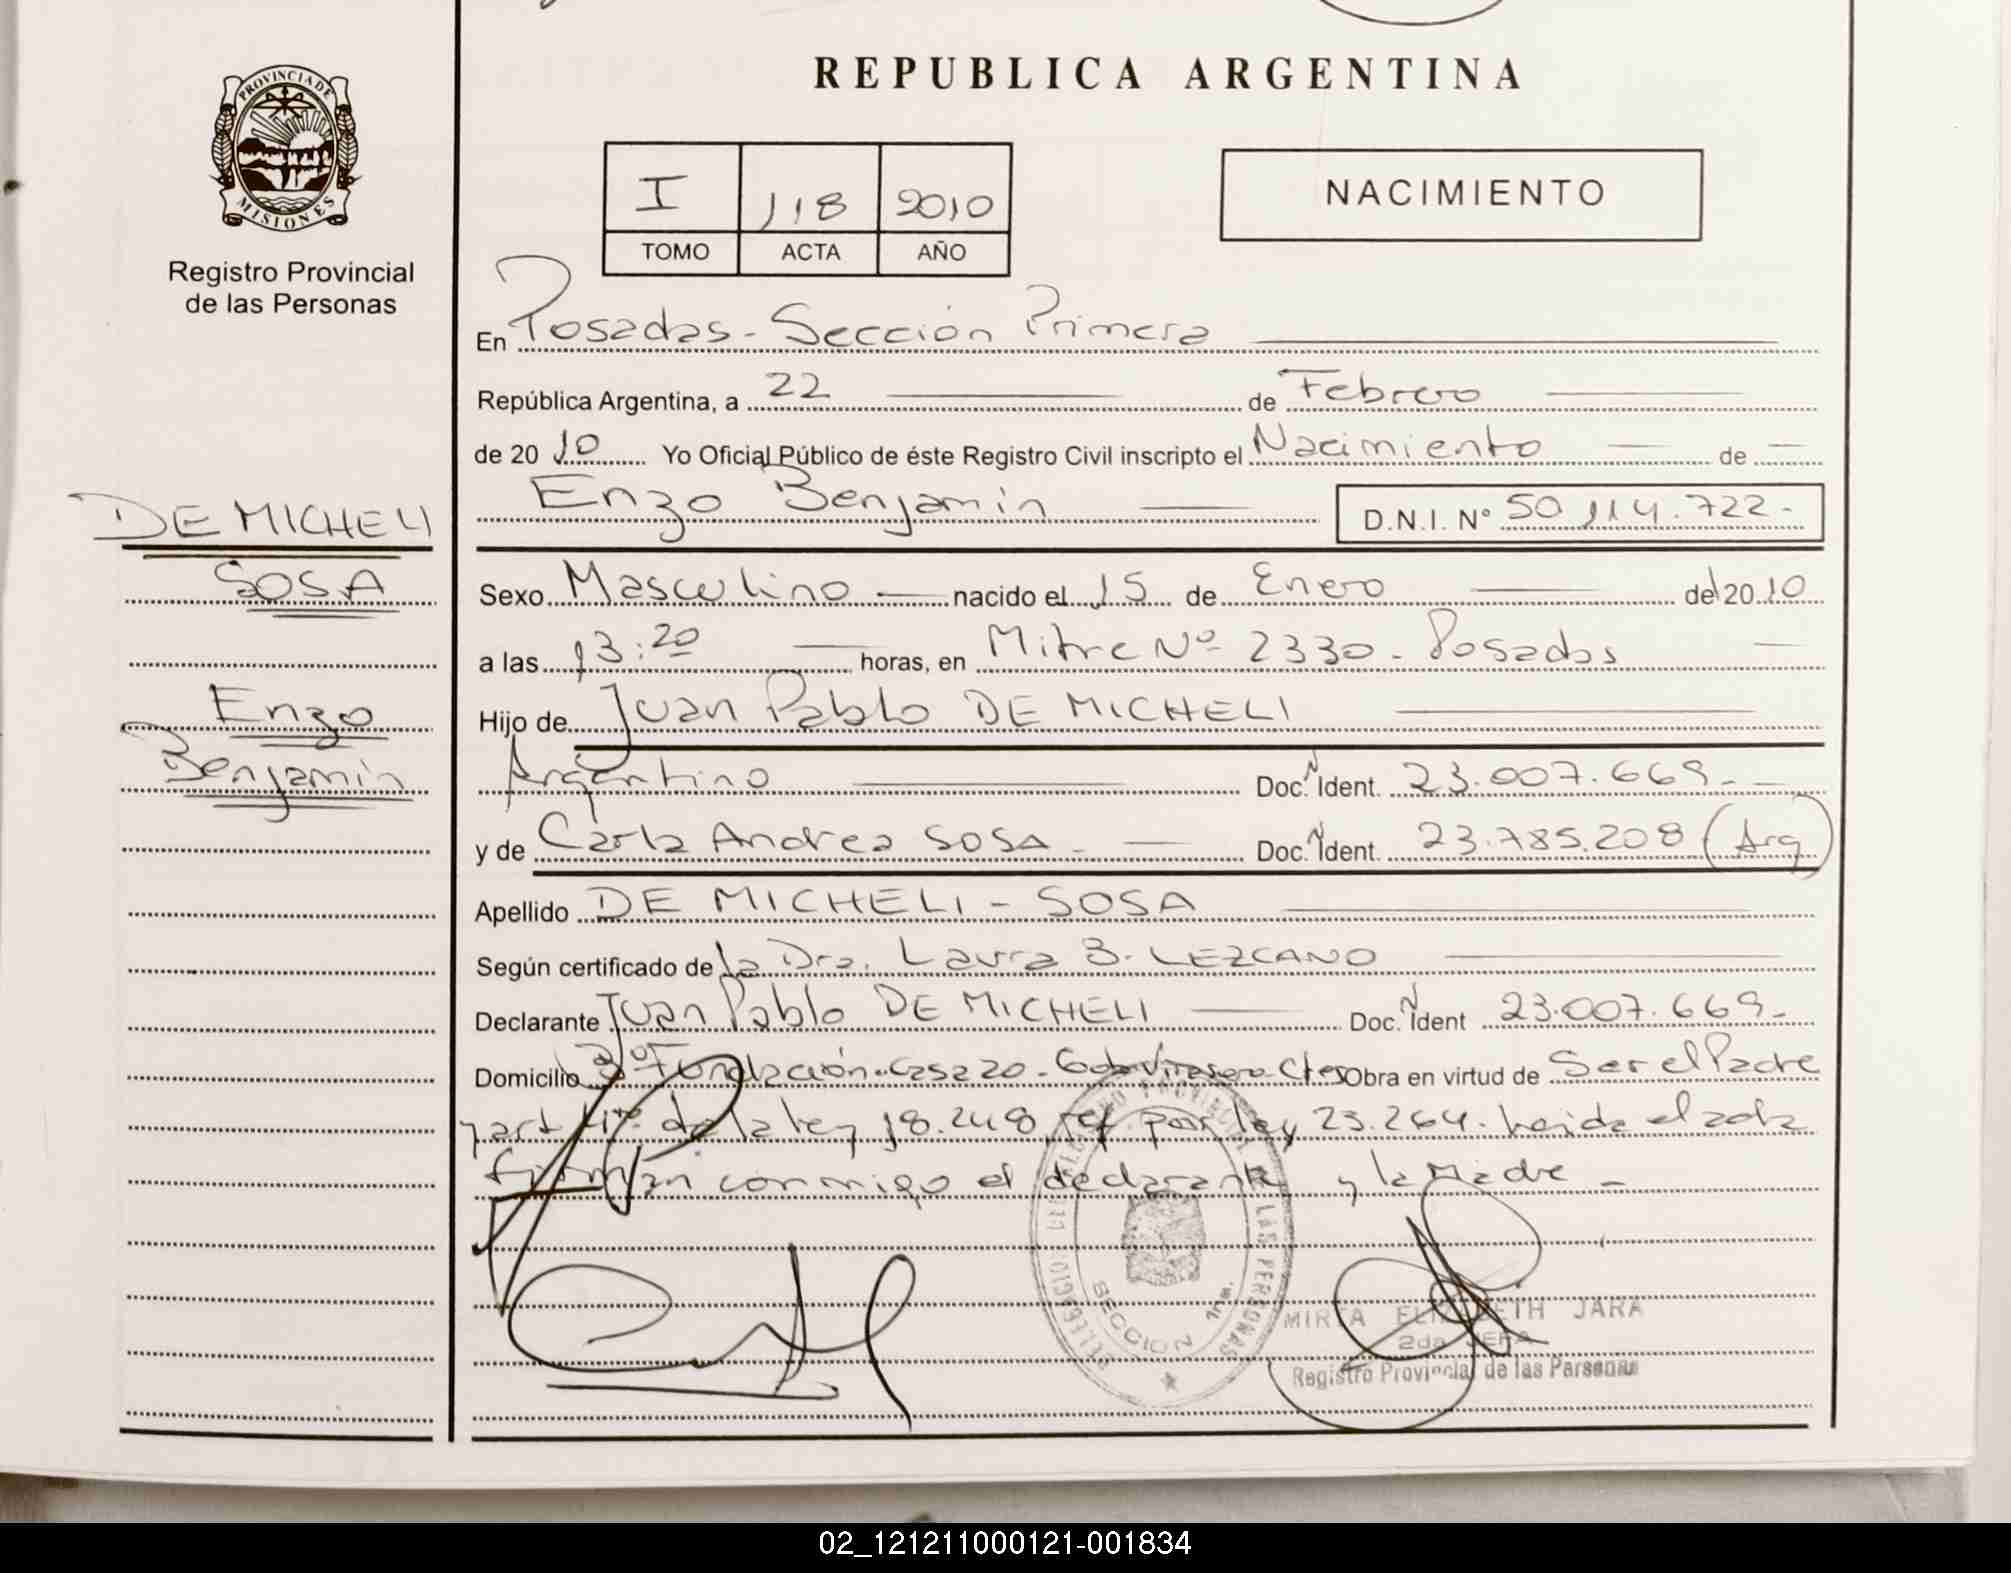 REPUBLICA ARGENTINA
PROVINCIA DE
MISIONES
Registro Provincial
de las Personas
I 118 2010
TOMO ACTA AÑO
NACIMIENTO
En Posadas - Sección Primera
República Argentina, a 22 de Febrero
de 20 10 Yo Oficial Público de éste Registro Civil inscripto el Nacimiento de
Enzo Benjamín D.N.I. Nº 50.114.722.-
DE MICHELI
SOSA
Enzo
Benjamín
Sexo Masculino nacido el 15 de Enero de 2010
a las 13:20 horas, en Mitre Nº 2330 - Posadas
Hijo de Juan Pablo DE MICHELI
Argentino Doc. N Ident. 23.007.669.-
y de Carla Andrea SOSA - Doc. N Ident. 23.785.208 (Arg)
Apellido DE MICHELI - SOSA
Según certificado de la Dra. Laura B. LEZCANO
Declarante Juan Pablo DE MICHELI Doc. N Ident 23.007.669.-
Domicilio Bº Fundación - Casa 20 - Gdor Virasoro - Ctes Obra en virtud de Ser el Padre
y art 4º de la ley 18.248 ref por ley 23.264. Leída el acta
firman conmigo el declarante y la Madre -
DELEGACION DEL REGISTRO PROVINCIAL DE LAS PERSONAS
SECCION 1ra.
MIRTA ELIZABETH JARA
2da JEFA
Registro Provincial de las Personas
02_121211000121-001834